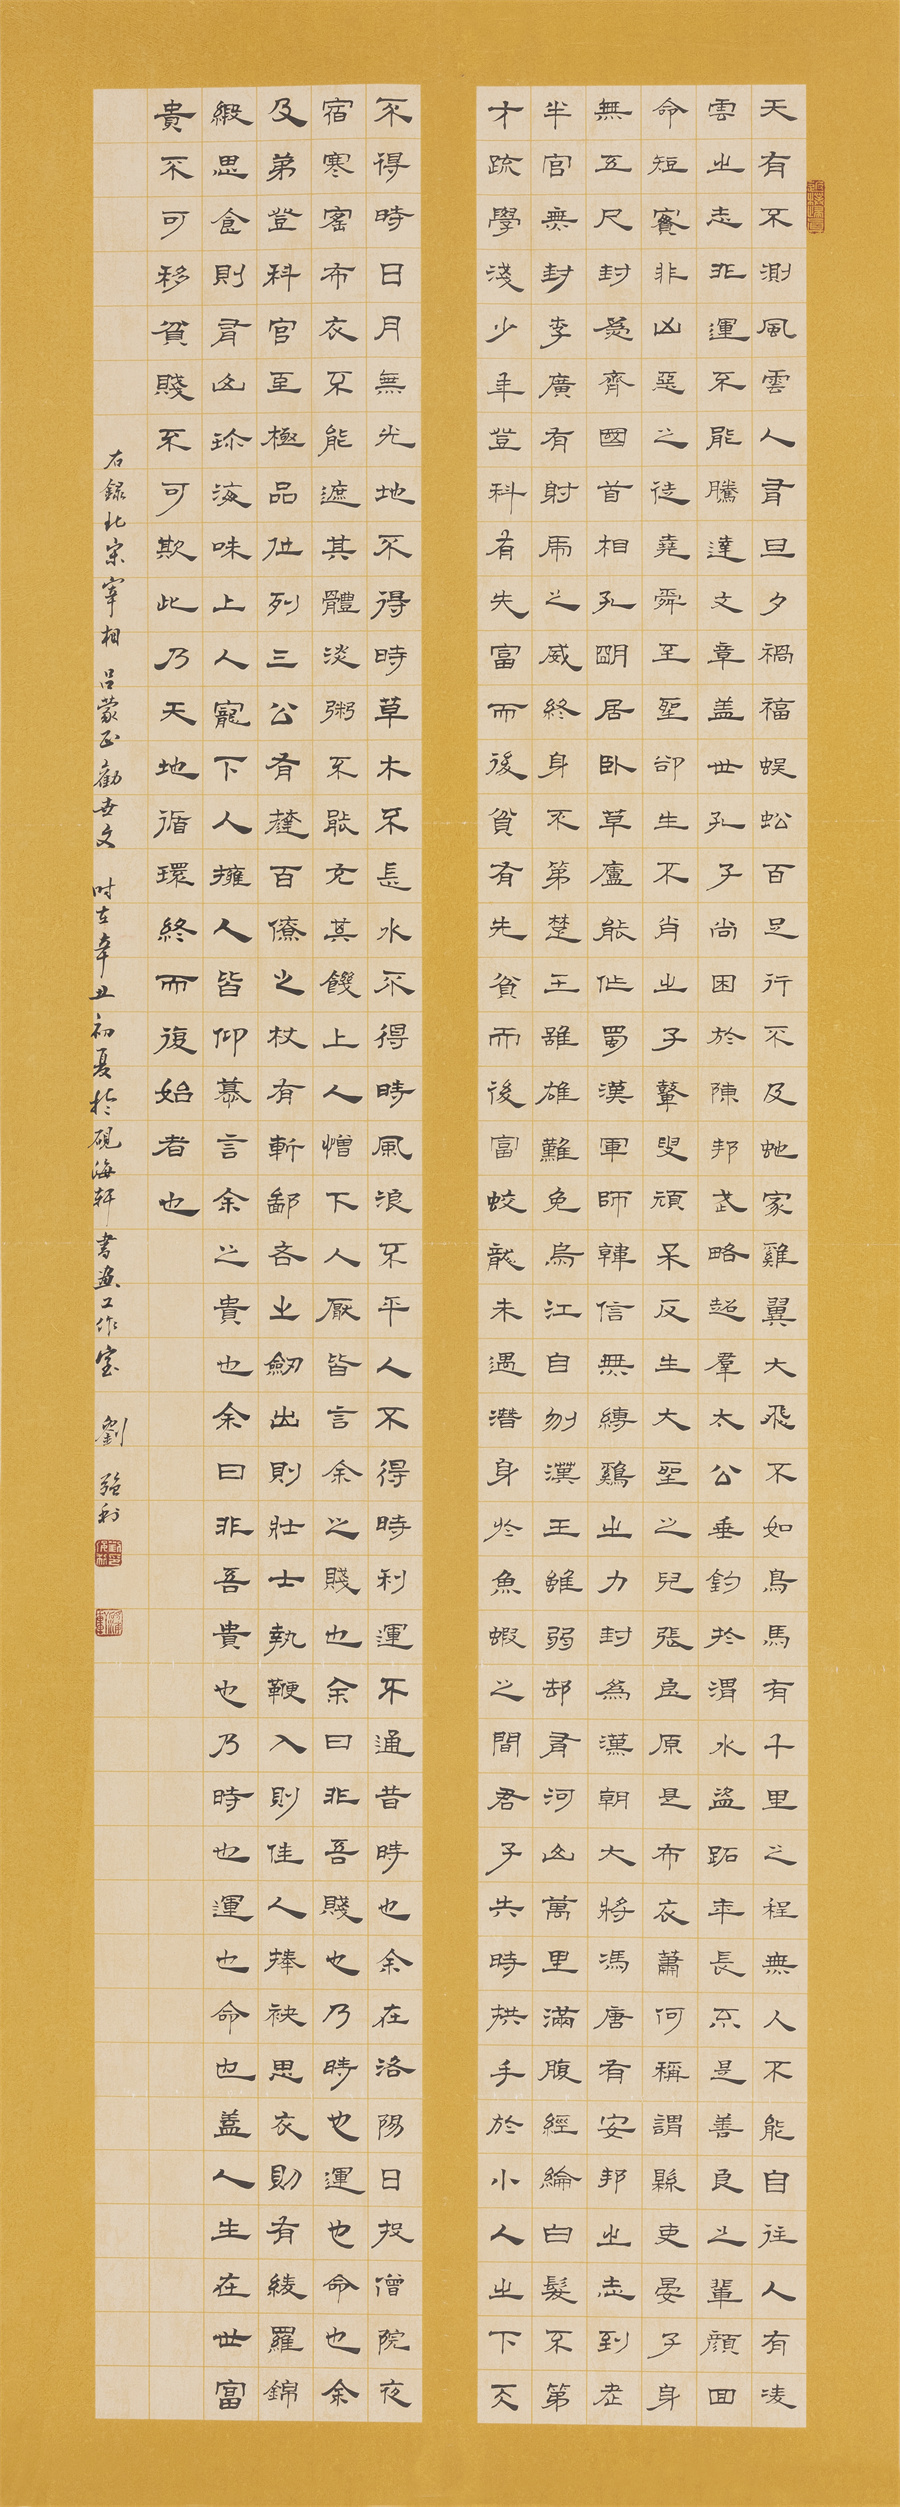 天有不測風雲人有旦夕禍福蜈蚣百足行不及虵家雞翼大飛不如鳥馬有千里之程無人不能自往人有凌
雲之志非運不能騰達文章盖世孔子尚困於陳邦武略超羣太公垂釣於渭水盜跖年長不是善良之輩顏回
命短實非凶惡之徒堯舜至聖卻生不肖之子瞽叟頑呆反生大聖之兒張良原是布衣蕭何稱謂縣吏晏子身
無五尺封為齊國首相孔明居臥草廬能作蜀漢軍師韓信無縛鷄之力封為漢朝大將馮唐有安邦之志到老
半官無封李廣有射虎之威終身不第楚王雖雄難免烏江自刎漢王雖弱却有河山萬里滿腹經綸白髮不第
才疏學淺少年登科有先富而後貧有先貧而後富蛟龍未遇潛身於魚蝦之間君子失時拱手於小人之下天
不得時日月無光地不得時草木不長水不得時風浪不平人不得時利運不通昔時也余在洛陽日投僧院夜
宿寒窰布衣不能遮其體淡粥不能充其饑上人憎下人厭皆言余之賤也余曰非吾賤也乃時也運也命也余
及第登科官至極品位列三公有撻百僚之杖有斬鄙吝之劒出則壯士執鞭入則佳人捧袂思衣則有綾羅錦
緞思食則有山珍海味上人寵下人擁人皆仰慕言余之貴也余曰非吾貴也乃時也運也命也蓋人生在世富
貴不可移貧賤不可欺此乃天地循環終而復始者也
右錄北宋宰相呂蒙正勸世文時在辛丑初夏於硯海軒書畫工作室劉強利